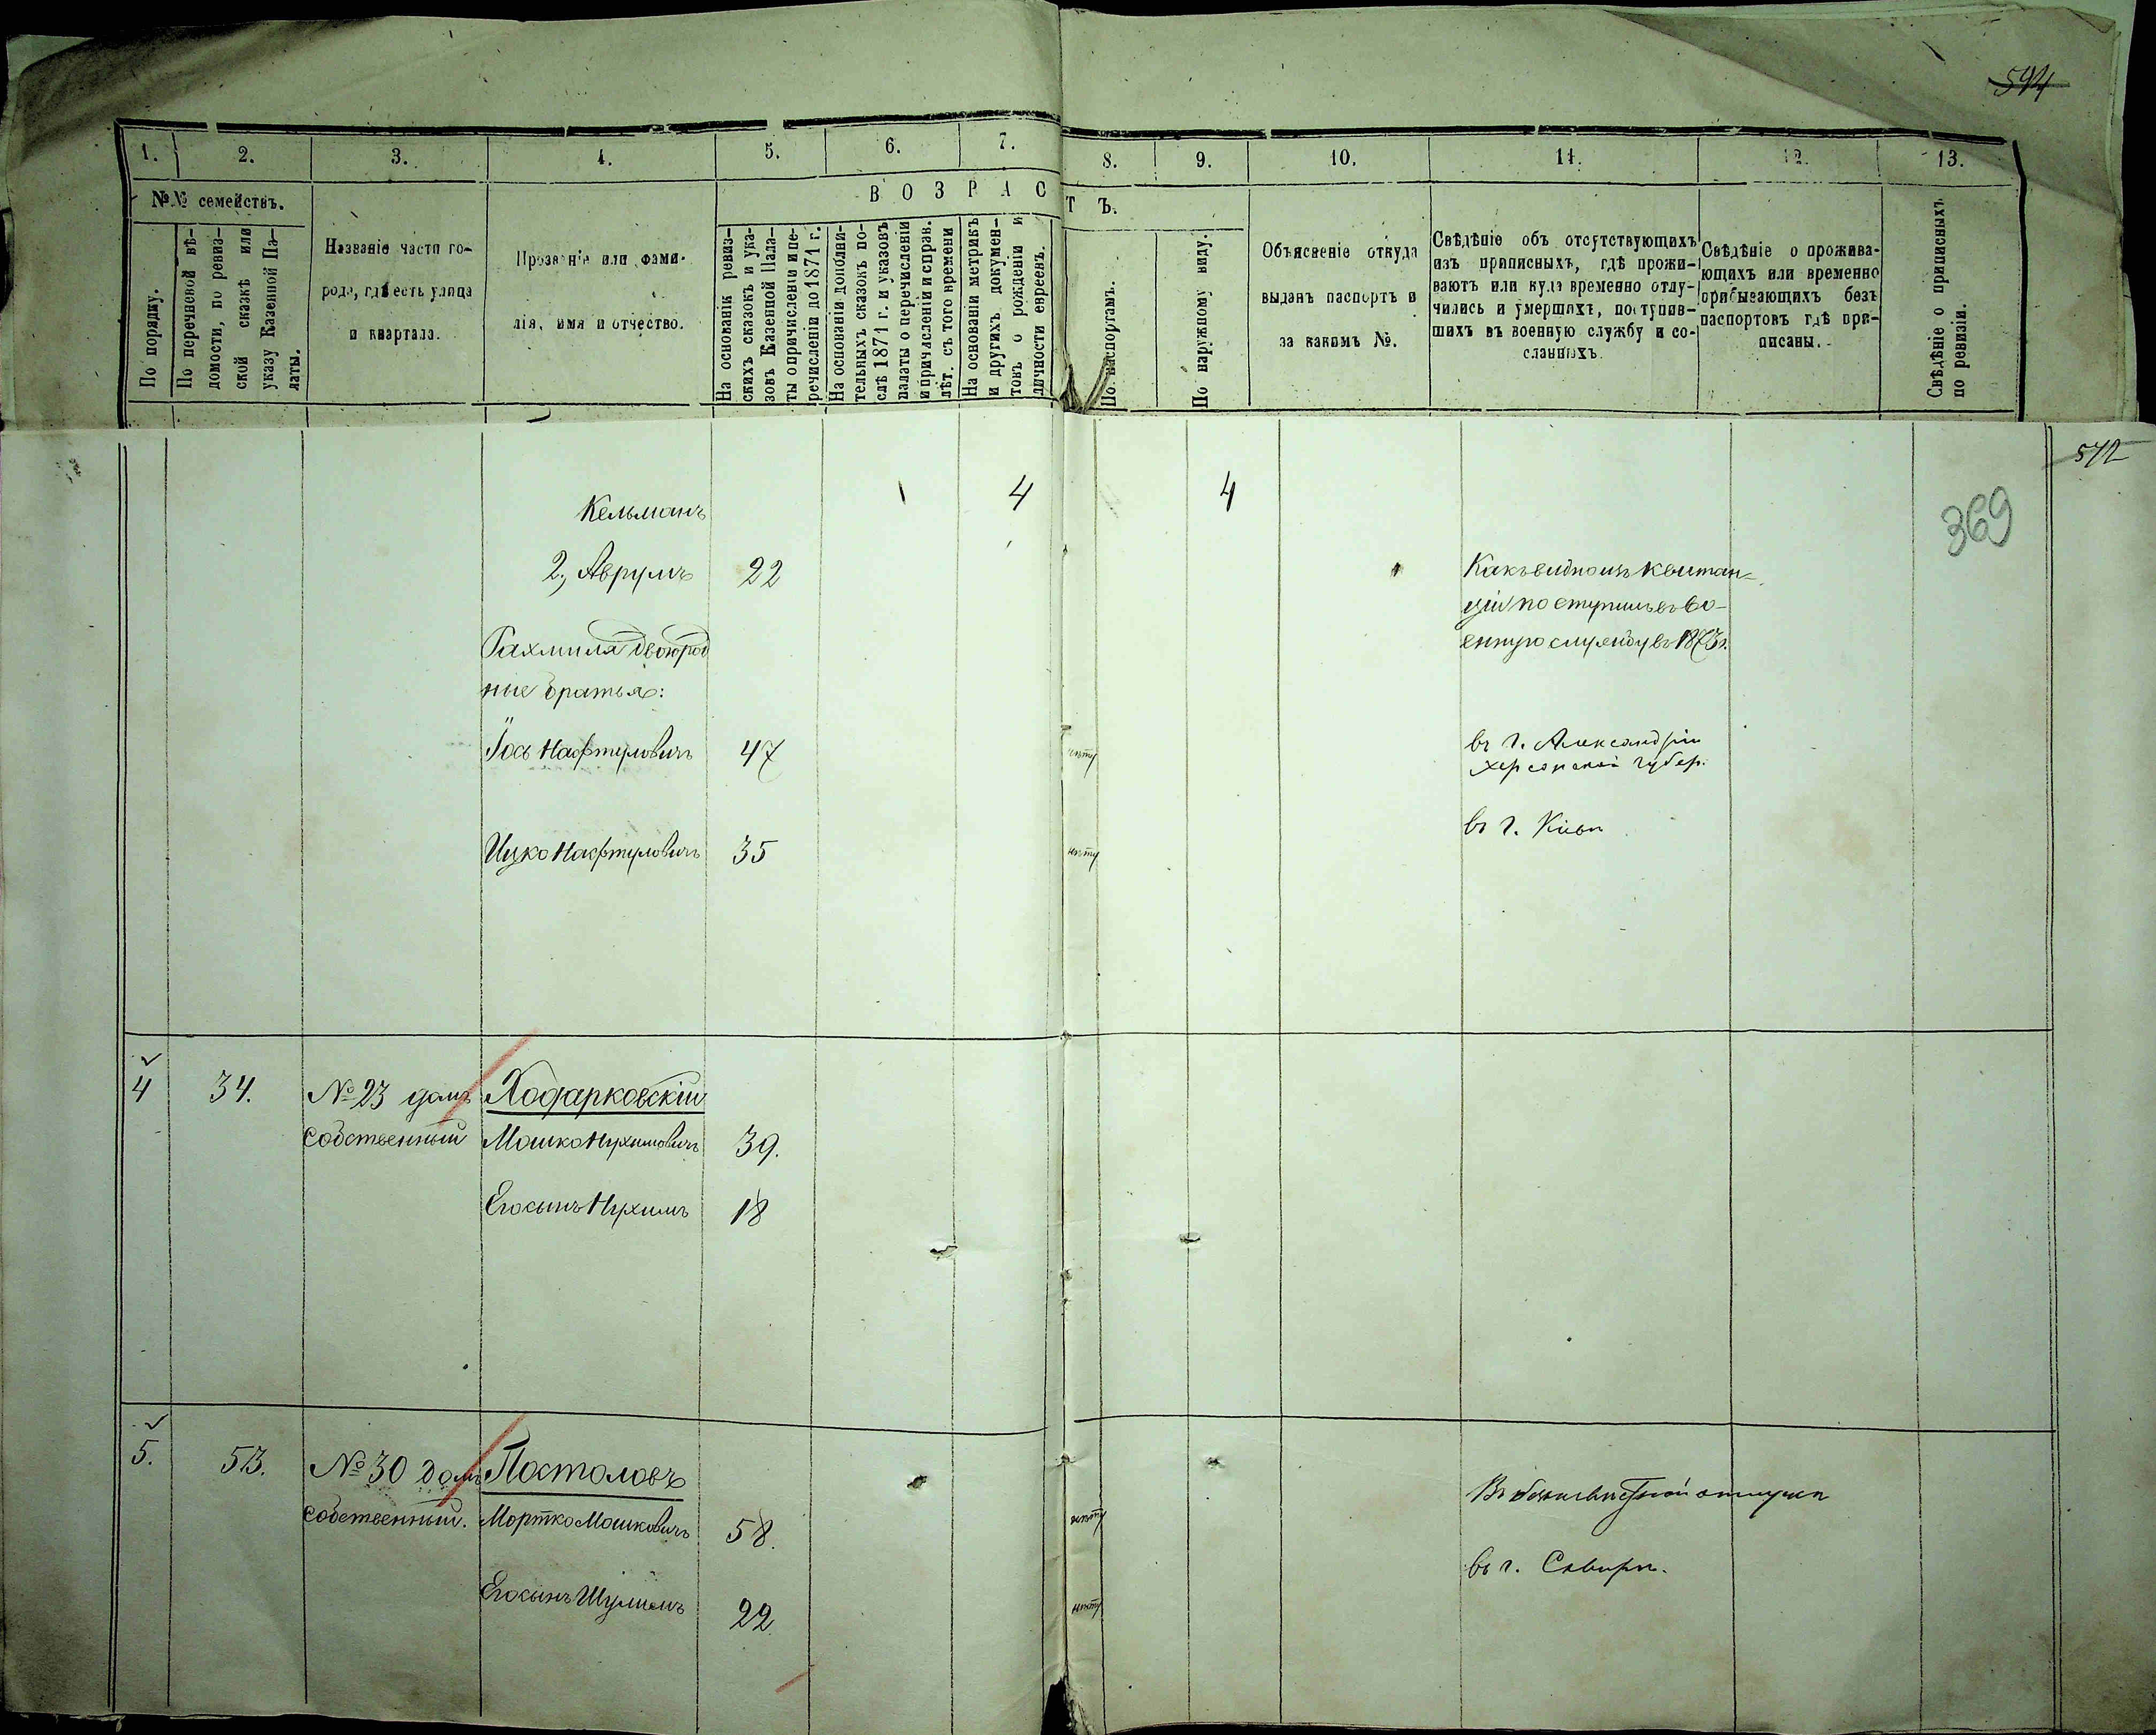 594
1. 2. 3. 4. 5. 6. 7. 8. 9. 10. 11. 12. 13.
№№ семействъ.
В О З Р А С Т Ъ.
По порядку.
По перечневой вѣ-
домости, по ревиз-
ской сказкѣ или
указу Казенной Па-
латы.
Названіе части го-
рода, гдѣ есть улица
и квартала.
Прозваніе или фами-
лія, имя и отчество.
На основаніи ревиз-
скихъ сказокъ и ука-
зовъ Казенной Пала-
ты о причисленіи и пе-
речисленіи до 1871 г.
На основаніи дополни-
тельныхъ сказокъ по-
слѣ 1871 г. и указовъ
палаты о перечисленіи
и причисленіи и справ.
лѣт. съ того времени
На основаніи метрикъ
и другихъ докумен-
товъ о рожденіи и
личности евреевъ.
По паспортамъ.
По наружному виду.
Объясненіе откуда
выданъ паспортъ и
за какимъ №.
Свѣдѣніе объ отсутствующихъ
изъ приписныхъ, гдѣ прожи-
ваютъ или куда временно отлу-
чились и умершихъ, поступив-
шихъ въ военную службу и со-
сланныхъ.
Свѣдѣніе о прожива-
ющихъ или временно
прибывающихъ безъ
паспортовъ гдѣ при-
писаны.
Свѣдѣніе о приписныхъ
по ревизіи.
572
369
Кельманъ 4 4
2, Аврумъ 22
Какъ видно изъ квитан-
ціи поступилъ въ во-
енную службу въ 1873 г.
Рахмиля двоюрод
ные братья:
Іось Нафтуловичъ 47 нѣту
въ г. Александріи
Херсонской губер.
Ицко Нафтуловичъ 35 нѣту
въ г. Кіевѣ
4 34. №23 домъ Ходарковскій
собственный Мошко Нухимовичъ 39.
Его сынъ Нухимъ 18
5. 53. №30 домъ Постоловъ
собственный. Мортко Мошковичъ 58. нѣту
отлучкѣ
Его сынъ Шулимъ 22 нѣту
въ г. Сквирѣ.